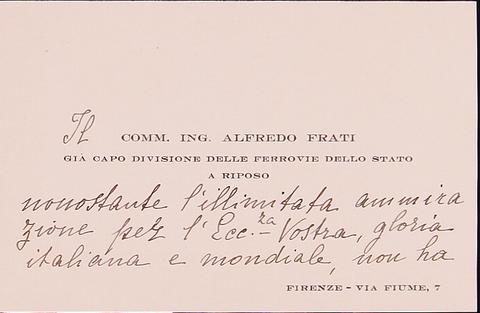 Il COMM. ING. ALFREDO FRATI
GIÀ CAPO DIVISIONE DELLE FERROVIE DELLO STATO
A RIPOSO
nonostante l'illimitata ammira
zione per l'Ecc.za Vostra, gloria
italiana e mondiale, non ha
FIRENZE - VIA FIUME, 7